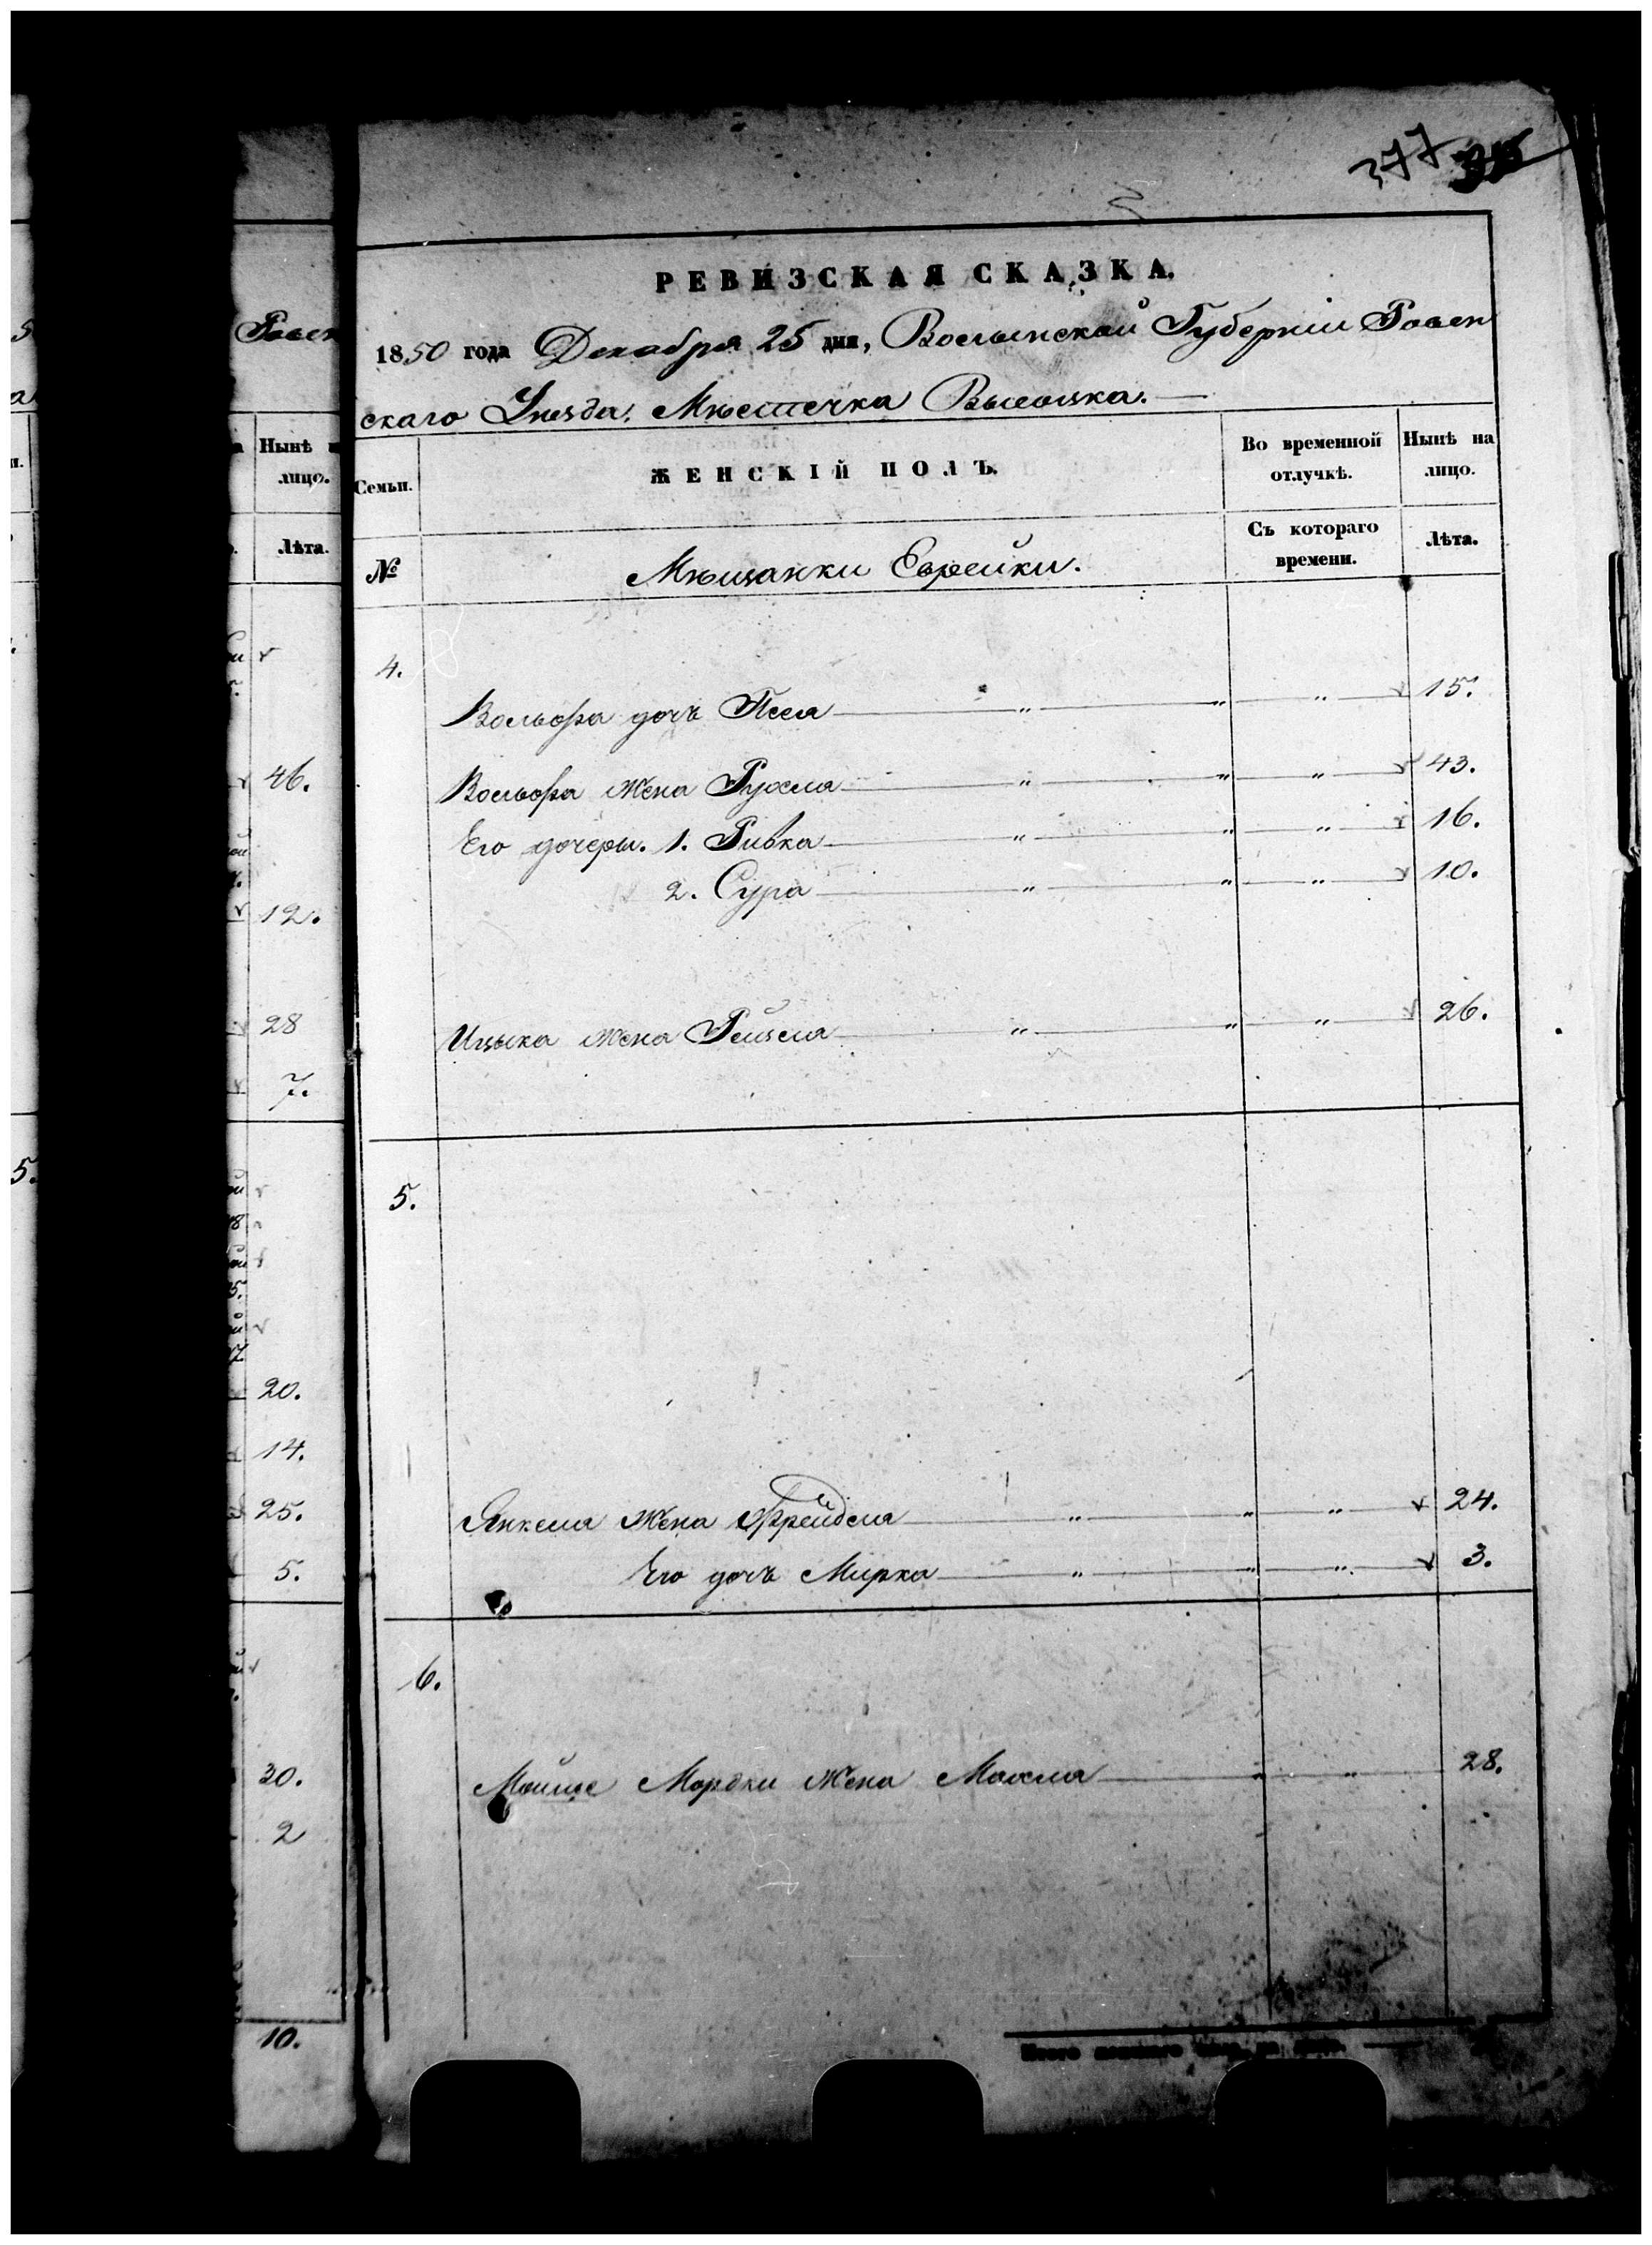 377
РЕВИЗСКАЯ СКАЗКА.
1850 года Декабря 25 дня, Волынской Губерніи Ровен
скаго Уѣзда. Мѣстечка Высоцка.
Семьи.
ЖЕНСКІЙ ПОЛЪ.
Во временной отлучкѣ.
Нынѣ на лицо.
№
Мѣщанки Еврейки.
Съ котораго времени.
Лѣта.
4.
Вольфа дочь Песя " " " 15.
Вольфа жена Рухля " " " 43.
Его дочери. 1. Ривка " " " 16.
2. Сура " " " 10.
Ицька жена Рейзля " " " 26.
5.
Янкеля жена Фрейдля " " " 24.
Его дочь Мирка " " " 3.
6.
Мойше Мордки жена Махля " " 28.
Ровен
Нынѣ
лицо.
Лѣта.
46.
12.
28
7.
20.
14.
25.
5.
30.
2
10.
5.